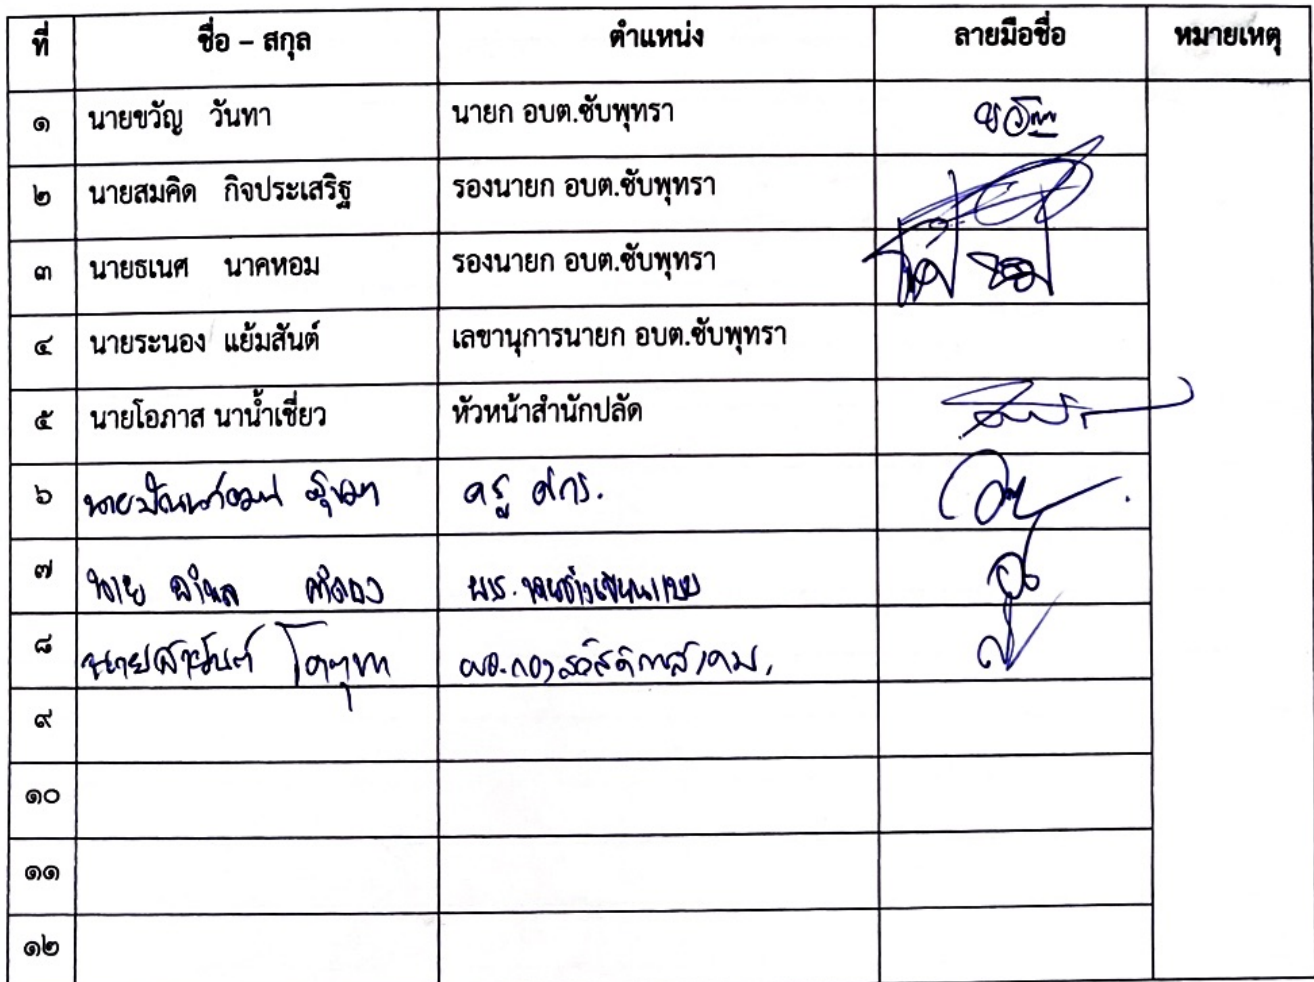 ที่ ชื่อ – สกุล ตำแหน่ง ลายมือชื่อ หมายเหตุ
๑ นายขวัญ วันทา นายก อบต.ซับพุทรา ขวัญ
๒ นายสมคิด กิจประเสริฐ รองนายก อบต.ซับพุทรา
๓ นายธเนศ นาคหอม รองนายก อบต.ซับพุทรา
๔ นายระนอง แย้มสันต์ เลขานุการนายก อบต.ซับพุทรา
๕ นายโอภาส นาน้ำเชี่ยว หัวหน้าสำนักปลัด
๖ ครู ศกร.
๗ นาย ผช. นายช่างเขียนแบบ
๘ นายสายันต์ โคตุทา ผอ.กองสวัสดิการสังคม.
๙
๑๐
๑๑
๑๒